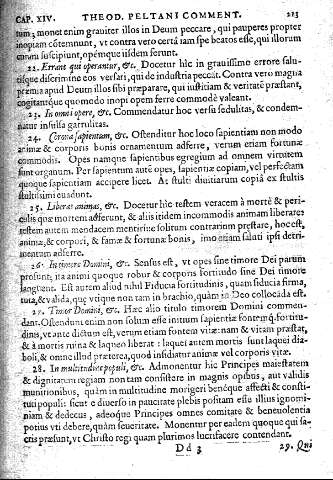 CAP. XIV. THEOD. PELTANI COMMENT. 213
tum; monet enim grauiter illos in Deum peccare, qui pauperes propter
inopiam cōtemnunt, vt contra vero certa iam spe beatos esse, qui illorum
curam suscipiunt, opēmque iisdem ferunt.
22. Errant qui operantur, &c. Docetur hîc in grauissimo errore salu-
tisque discrimine eos versari, qui de industria peccāt. Contra vero magna
præmia apud Deum illos sibi præparare, qui iustitiam & veritatē præstant,
cogitantque quomodo inopi opem ferre commodè valeant.
23. In omni opere, &c. Commendatur hoc versu sedulitas, & condem-
natur insulsa garrulitas.
24. Corona sapientum, &c. Ostenditur hoc loco sapientiam non modo
animæ & corporis bonis ornamentum adferre, verum etiam fortunæ
commodis. Opes namque sapientibus egregium ad omnem virtutem
sunt organum. Per sapientum autē opes, sapientiæ copiam, vel perfectam
quoque sapientiam accipere licet. At stulti diuitiarum copiâ ex stultis
stultissimi euadunt.
25. Liberat animas, &c. Docetur hîc testem veracem à morte & peri-
culis quæ mortem adferunt, & aliis itidem incommodis animam liberare:
testem autem mendacem mentiri ac solitum contrarium præstare, hoc est,
animæ, & corpori, & famæ & fortunæ bonis, imo etiam saluti ipsi detri-
mentum adferre.
26. In timore Domini, &c. Sensus est, vt opes sine timore Dei parum
prosunt; ita animi quoque robur & corporis fortitudo sine Dei timore
languent. Est autem aliud nihil Fiducia fortitudinis, quàm fiducia firma,
tuta, & valida, quę vtique non tam in brachio, quàm in Deo collocata est.
27. Timor Domini, &c. Hæc alio titulo timorem Domini commen-
dant. Ostendunt enim non solum esse initum sapientiæ fontemq́; fortitu-
dinis, vt ante dictum est, verùm etiam fontem vitæ: nam & vitam præstat,
& à mortis ruina & laqueo liberat: laquei autem mortis sunt laquei dia-
boli, & omne illud præterea, quod insidiatur animæ vel corporis vitæ.
28. In multitudine populi, &c. Admonentur hîc Principes maiestatem
& dignitatem regiam non tam consistere in magnis opibus, aut validis
munitionibus, quàm in multitudine morigeri benéque affecti & consti-
tuti populi: sicut è diuerso in paucitate plebis positam esse illius ignomi-
niam & dedecus, adeóque Principes omnes comitate & beneuolentia
potius vti debere, quàm seueritate. Monentur per eadem quoque qui sa-
cris præsunt, vt Christo regi quàm plurimos lucrifacere contendant.
D d 3 29. Qui